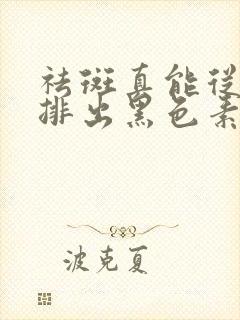 祛斑真能從
排出黑色素
波克夏